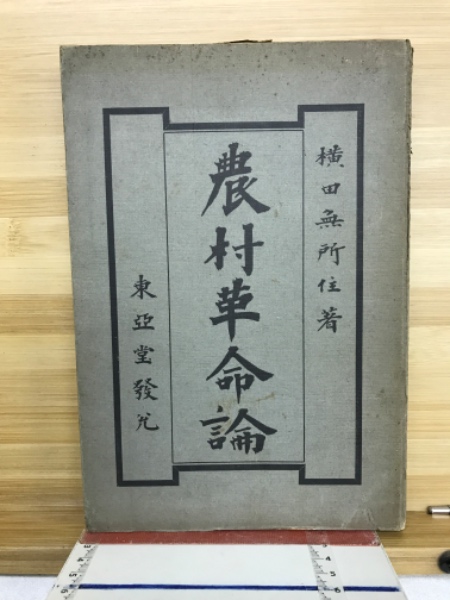 横田無所住著
農村革命論
東亞堂發兌